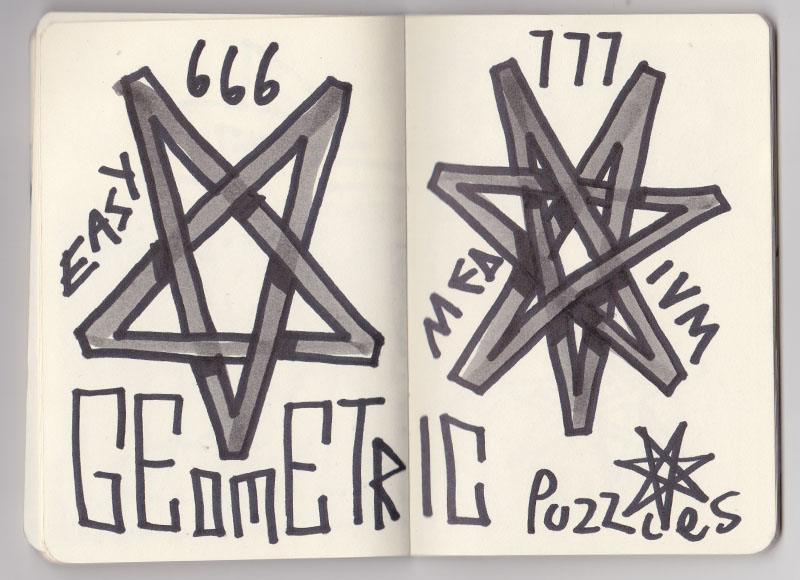 666
777
EASY
MEDIUM
GEOMETRIC Puzzles